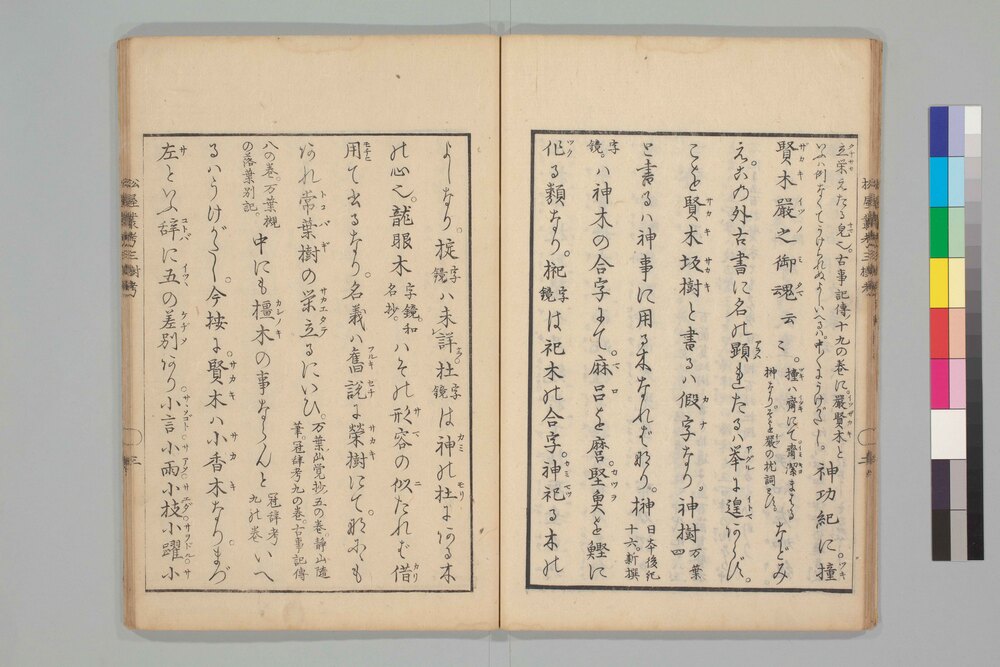 立栄えたる皃也。古事記傳十九の巻に。嚴賢木と
いふは例なくてうけられぬよしいへるハ。中〳〵にうけがたし。神功紀に。撞
賢木嚴之御魂云々。撞ハ齋にて齋潔まはる
榊なり。そを嚴の枕詞とせり。などみ
え。この外古書に名の顕れたるハ挙に遑あらず。
ことを賢木坂樹と書るハ假字なり。神樹 万葉四
と書るハ神事に用る木なればなり。榊 日本後紀十六。新撰
字鏡。ハ神木の合字にて。麻呂を麿。堅魚を鰹に
作る類なり。榌 字鏡 は祀木の合字。神祀る木の
よしなり。椗 字鏡 ハ未詳。杜 字鏡 は神の杜にある木
の心也。龍眼木 字鏡。和名抄。 ハその形容の似たれば借
用て出るなり。名義ハ舊説に榮樹にて。何にも
あれ常葉樹の栄立るにいひ。万葉仙覚抄五の巻。静山隨
筆。冠辞考九の巻。古事記傳
八の巻。万葉槻
の落葉別記。中にも橿木の事ならんと 冠辞考九の巻 いへ
るハうけがたし。今按に。賢木ハ小香木なり。まづ
左といふ辞に五の差別あり。小言小雨小枝小躍小